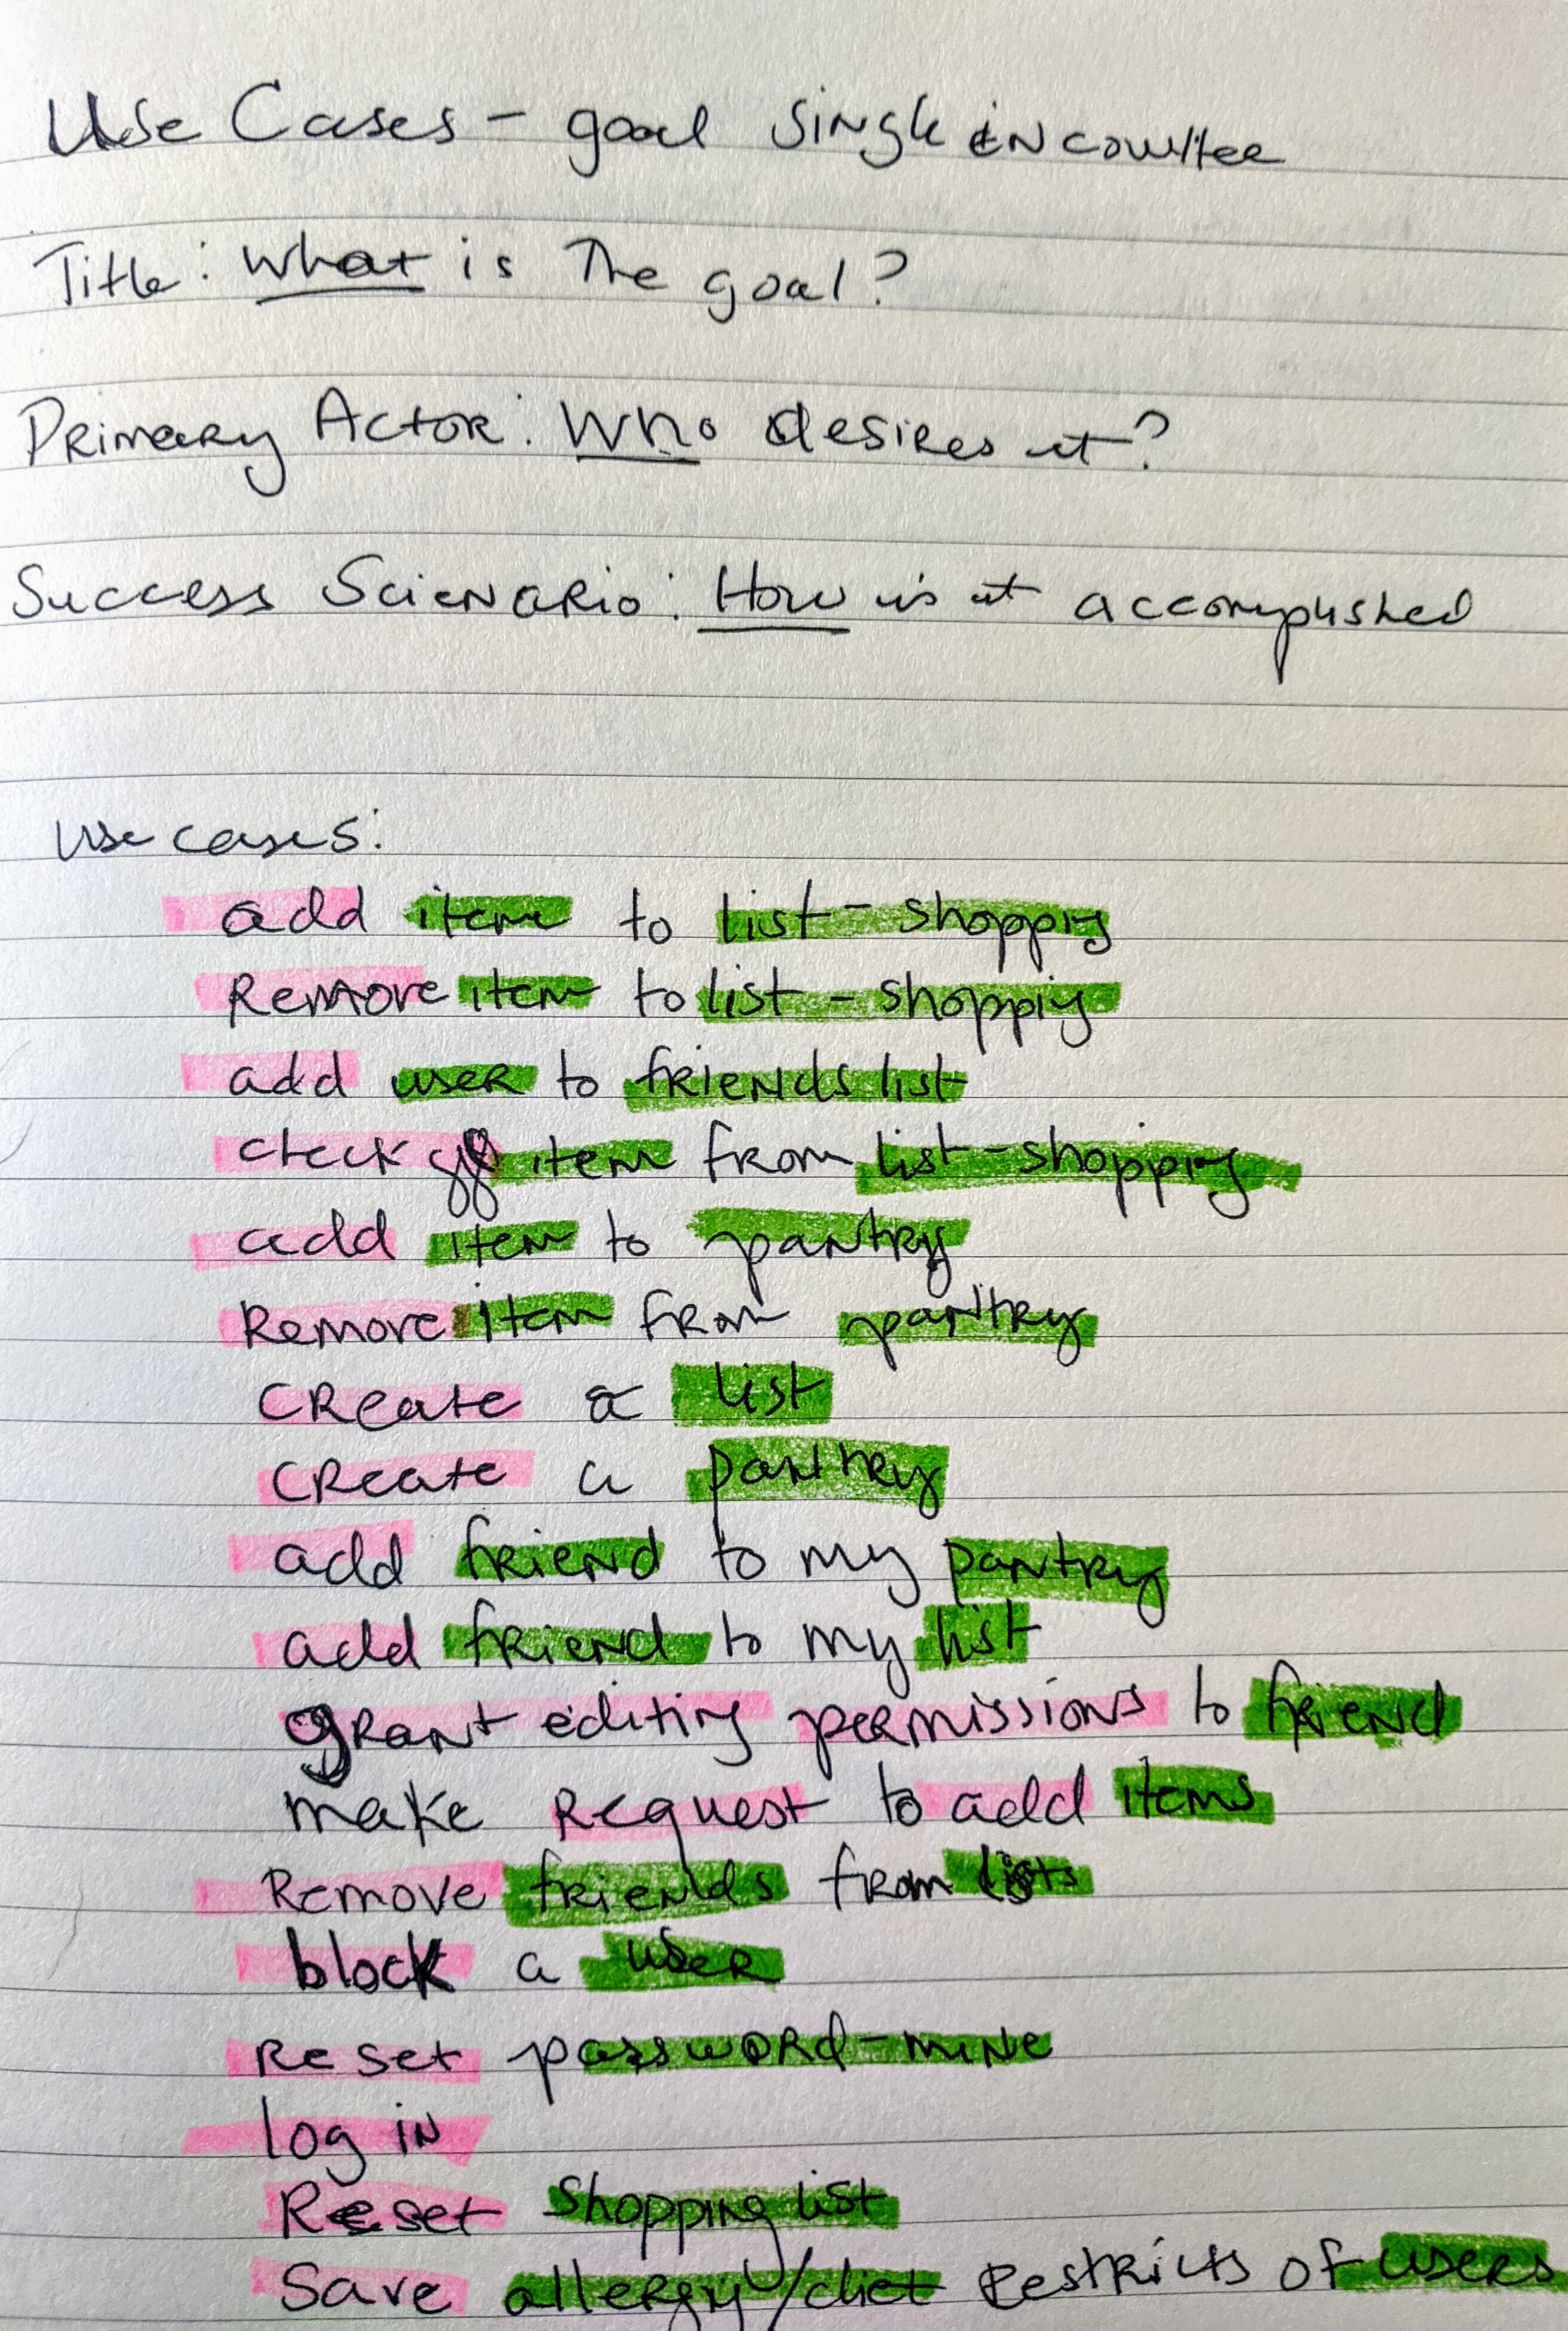 Use Cases - goal single encounter
Title: What is The goal?
Primary Actor: Who desires it?
Success Scienario: How is it accomplished
use cases:
add item to list - shopping
Remove item to list - shopping
add user to friends list
check off item from list - shopping
add item to pantry
Remove item from pantry
Create a list
Create a pantry
add friend to my pantry
add friend to my list
grant editing permissions to friend
make request to add items
Remove friends from lists
block a user
Reset password - mine
log in
Reset shopping list
Save allergy/diet Restricts of users